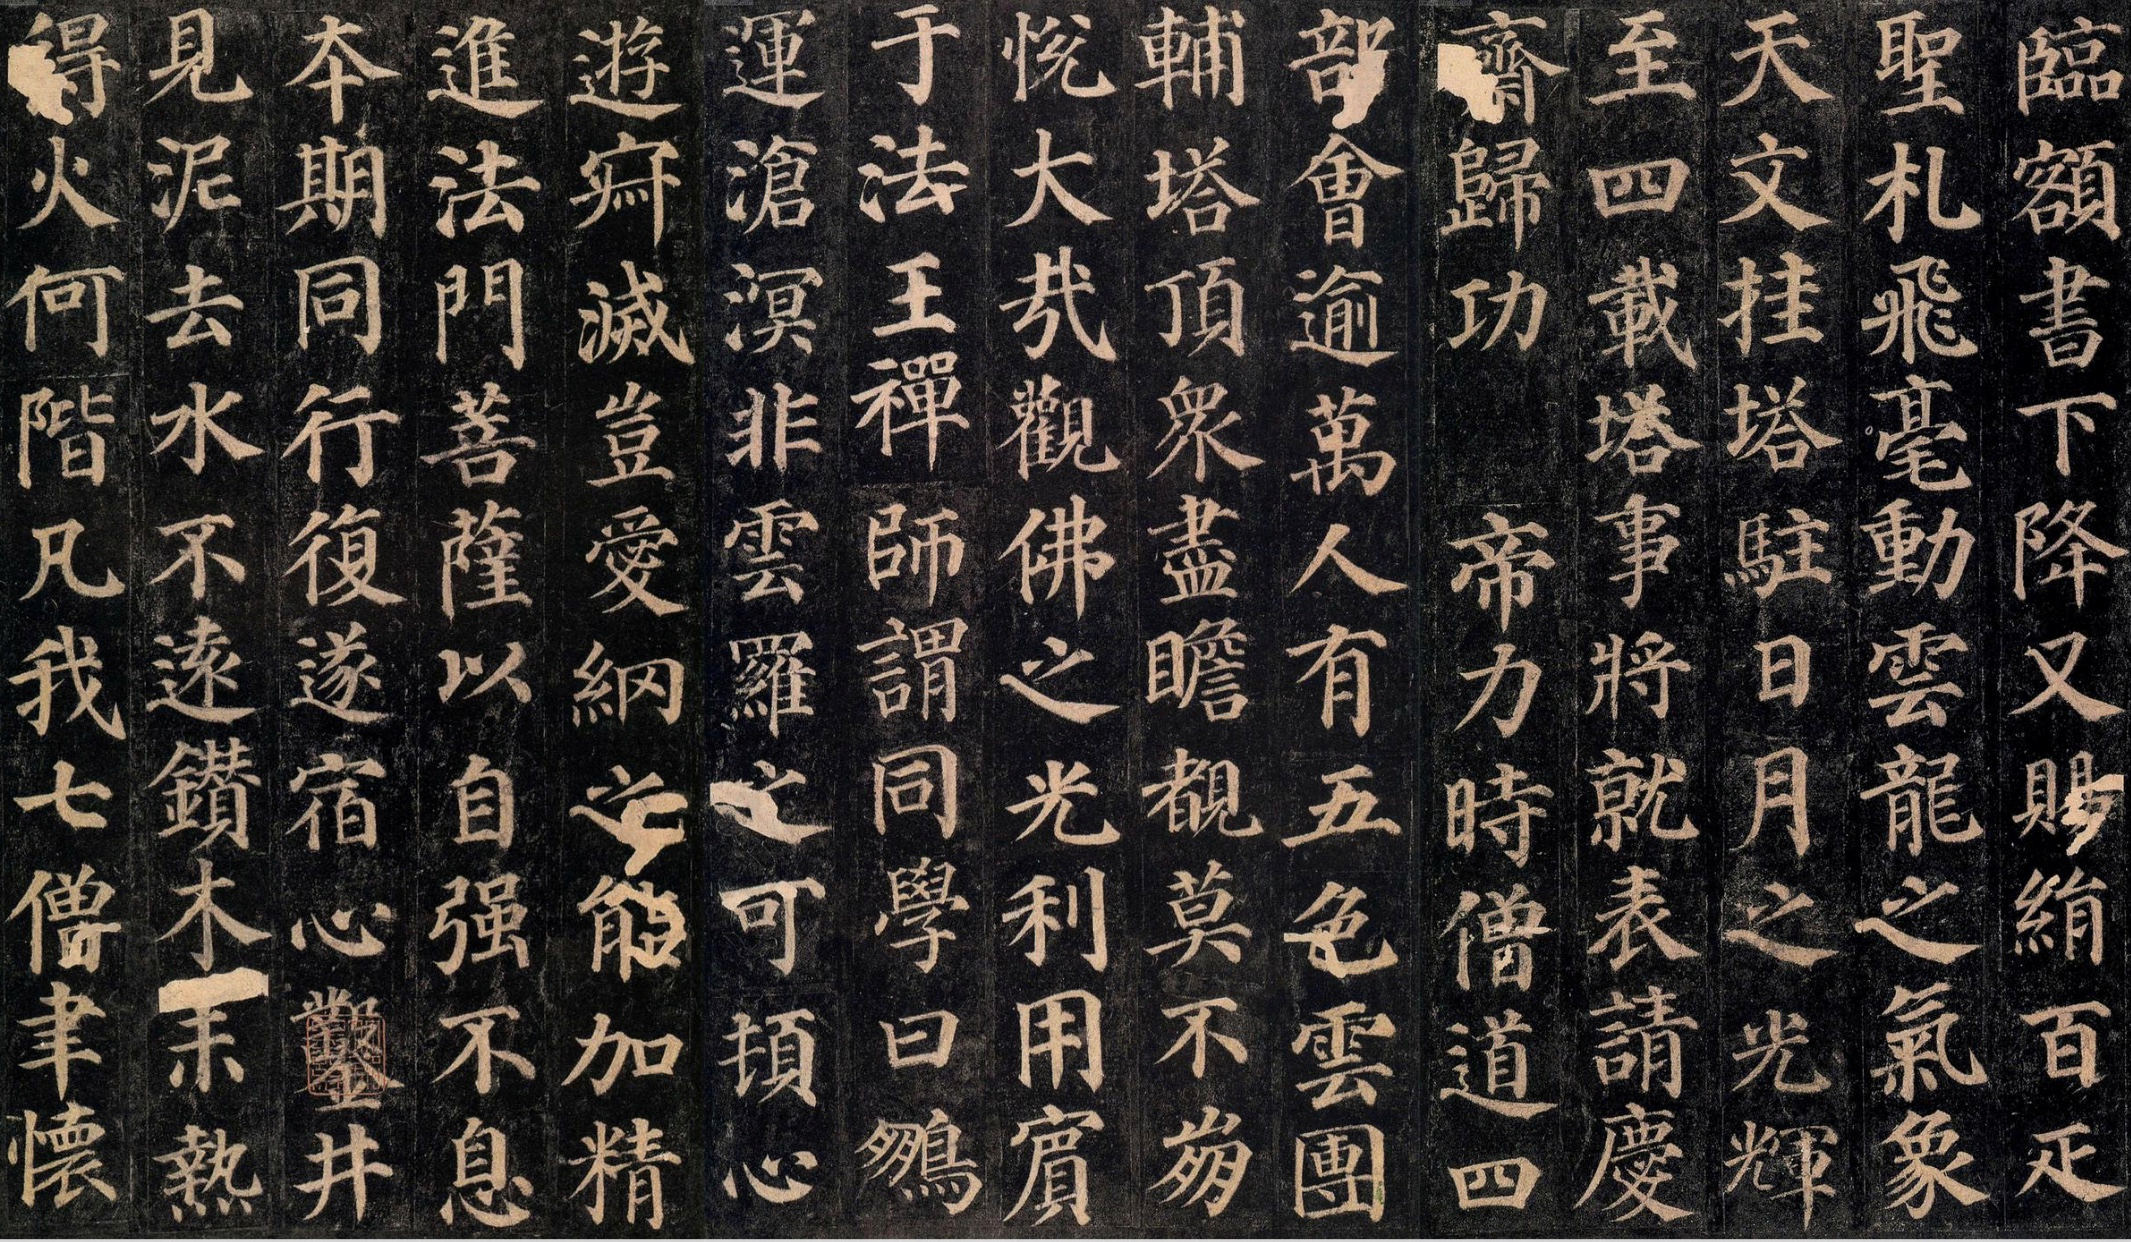 臨額書下降又賜絹百疋
聖札飛毫動雲龍之氣象
天文挂塔駐日月之光輝
至四載塔事將就表請慶
齋歸功帝力時僧道四
部會逾萬人有五色雲團
輔塔頂衆盡瞻覩莫不崩
悅大㢤觀佛之光利用賓
于法王禪師謂同學曰鵽
運滄溟非雲羅之可頓心
遊寂滅豈愛網之能加精
進法門菩薩以自强不息
本期同行復遂宿心鑿井
見泥去水不遠鑽木未熱
得火何階凡我七僧聿懷